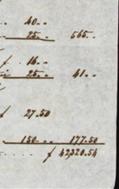 40..
25.. 565..
f 16..
25.. 41..
f 27.50
150.. 177.50
f 42320.54